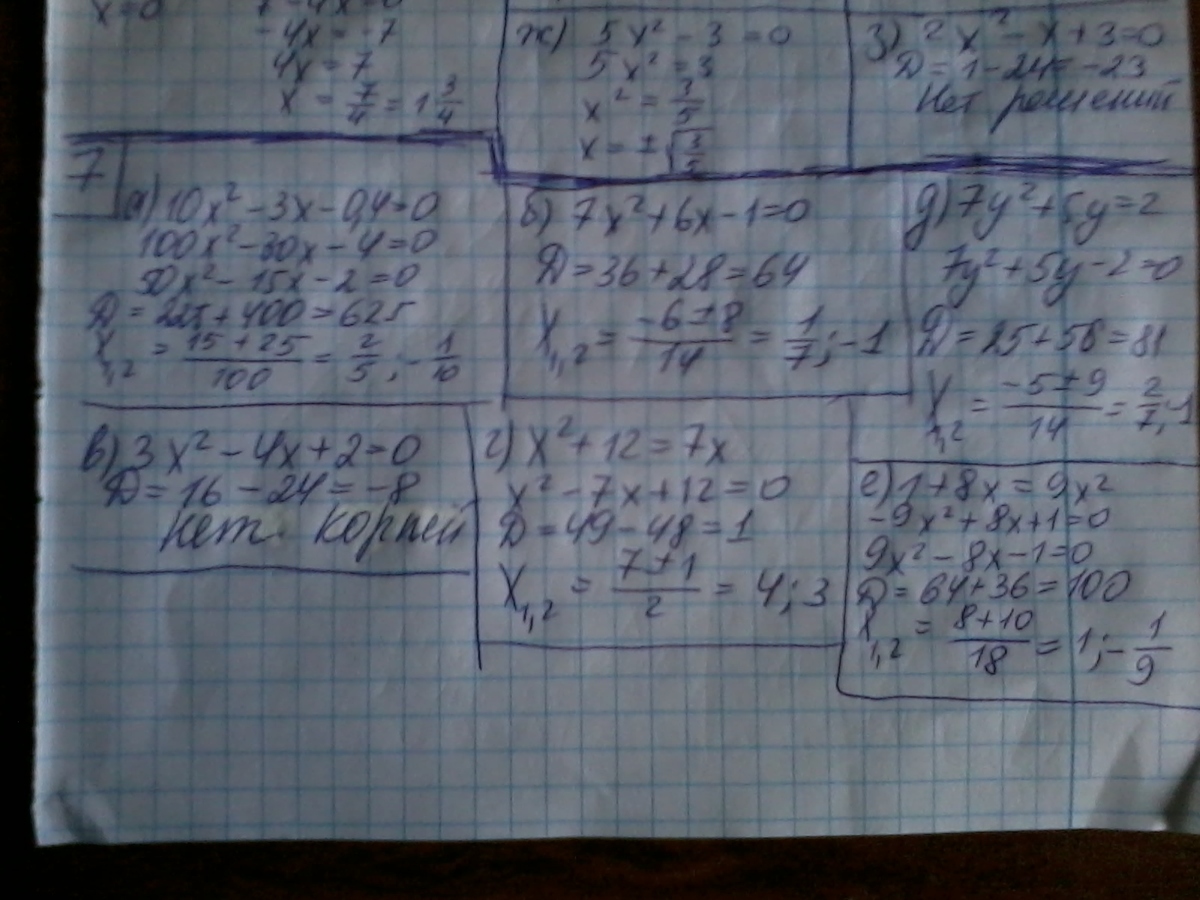 x=0
7-4x=0
-4x=-7
4x=7
x = 7/4 = 1 3/4
ж) 5x² - 3 = 0
5x² = 3
x² = 3/5
x = ±√3/5
з) 2x² - x + 3 = 0
D = 1 - 24 = -23
Нет решений
7
а) 10x² - 3x - 0,4 = 0
100x² - 30x - 4 = 0
50x² - 15x - 2 = 0
D = 225 + 400 = 625
X1,2 = 15±25/100 = 2/5; -1/10
б) 7x² + 6x - 1 = 0
D = 36 + 28 = 64
X1,2 = -6±8/14 = 1/7; -1
д) 7y² + 5y = 2
7y² + 5y - 2 = 0
D = 25 + 56 = 81
X1,2 = -5±9/14 = 2/7; -1
в) 3x² - 4x + 2 = 0
D = 16 - 24 = -8
нет корней
г) x² + 12 = 7x
x² - 7x + 12 = 0
D = 49 - 48 = 1
X1,2 = 7±1/2 = 4; 3
е) 1 + 8x = 9x²
-9x² + 8x + 1 = 0
9x² - 8x - 1 = 0
D = 64 + 36 = 100
X1,2 = 8±10/18 = 1; -1/9